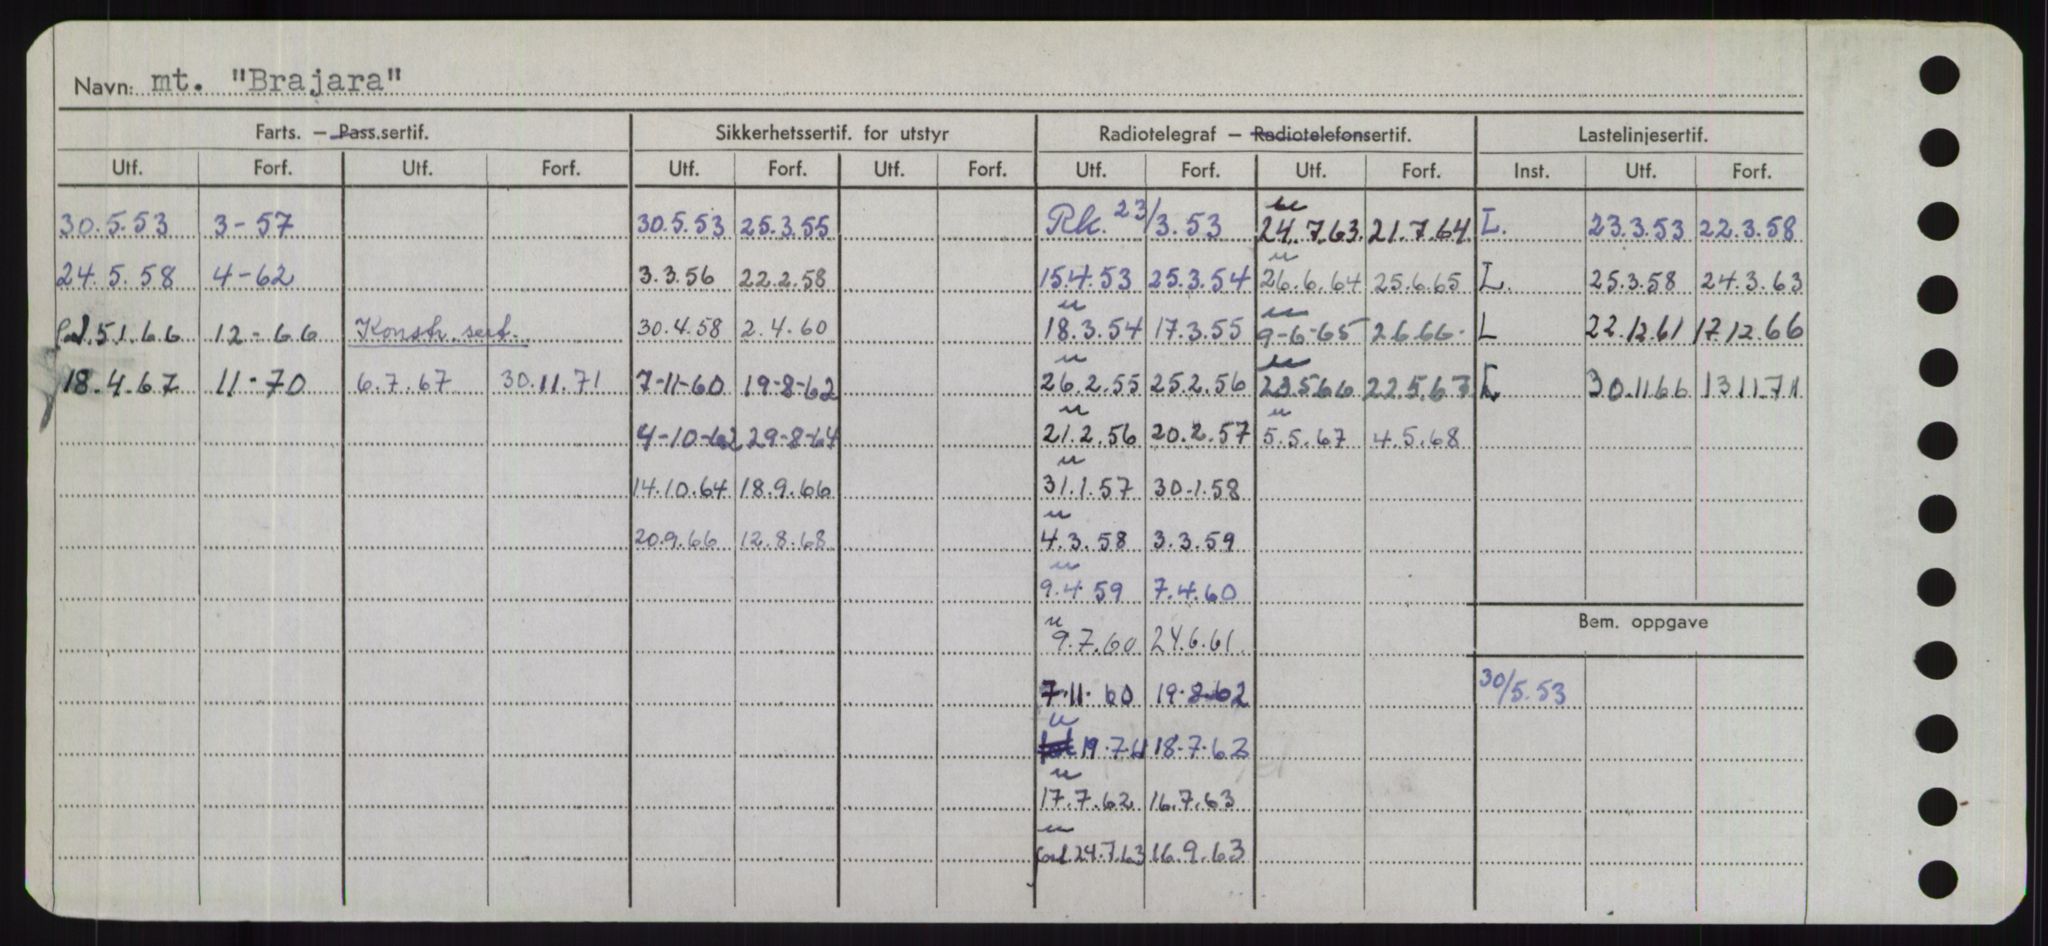 Navn: mt. "Brajara"
Farts. – Pass.sertif. Sikkerhetssertif. for utstyr Radiotelegraf – Radiotelefonsertif. Lastelinjesertif.
Utf. Forf. Utf. Forf. Utf. Forf. Utf. Forf. Utf. Forf. Utf. Forf. Inst. Utf. Forf.
30.5.53 3-57 30.5.53 25.3.55 Rk. 23/3.53 24.7.63 21.7.64 L. 23.3.53 22.3.58
24.5.58 4-62 3.3.56 22.2.58 15.4.53 25.3.54 26.6.64 25.6.65 L. 25.3.58 24.3.63
5.1.66 12-66 Konstr. sert. 30.4.58 2.4.60 18.3.54 17.3.55 9-6-65 2.6.66 L 22.12.61 17.12.66
18.4.67 11-70 6.7.67 30.11.71 7-11-60 19-8-62 26.2.55 25.2.56 23.5.66 22.5.67 L 30.11.66 13.11.71
4-10-62 29-8-64 21.2.56 20.2.57 5.5.67 4.5.68
14.10.64 18.9.66 31.1.57 30.1.58
20.9.66 12.8.68 4.3.58 3.3.59
9.4.59 7.4.60
Bem. oppgave
9.7.60 24.6.61
7-11-60 19-8-62 30/5.53
19.7.61 18-7-62
17.7.62 16.7.63
24.7.63 16.9.63